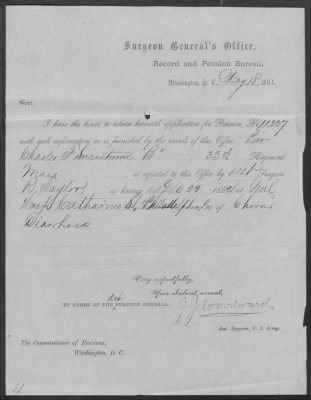 Surgeon General's Office,
Record and Pension Bureau,
Washington, D. C., May 18, 1864.
Sir:
I have the honor to return herewith application for Pension, No 11397
with such information as is furnished by the records of this Office.
Charles P "B" 33d Regiment
Mass is reported to this Office by
B. Taylor as having died Dec 22 1862, at Genl
Hosp Catharine St, Philadelphia Pa of Chronic
Diarrhoea
Very respectfully,
Your obedient servant,
BY ORDER OF THE SURGEON GENERAL:
J J Woodward
Asst. Surgeon, U. S. Army.
The Commissioner of Pensions,
Washington, D. C.